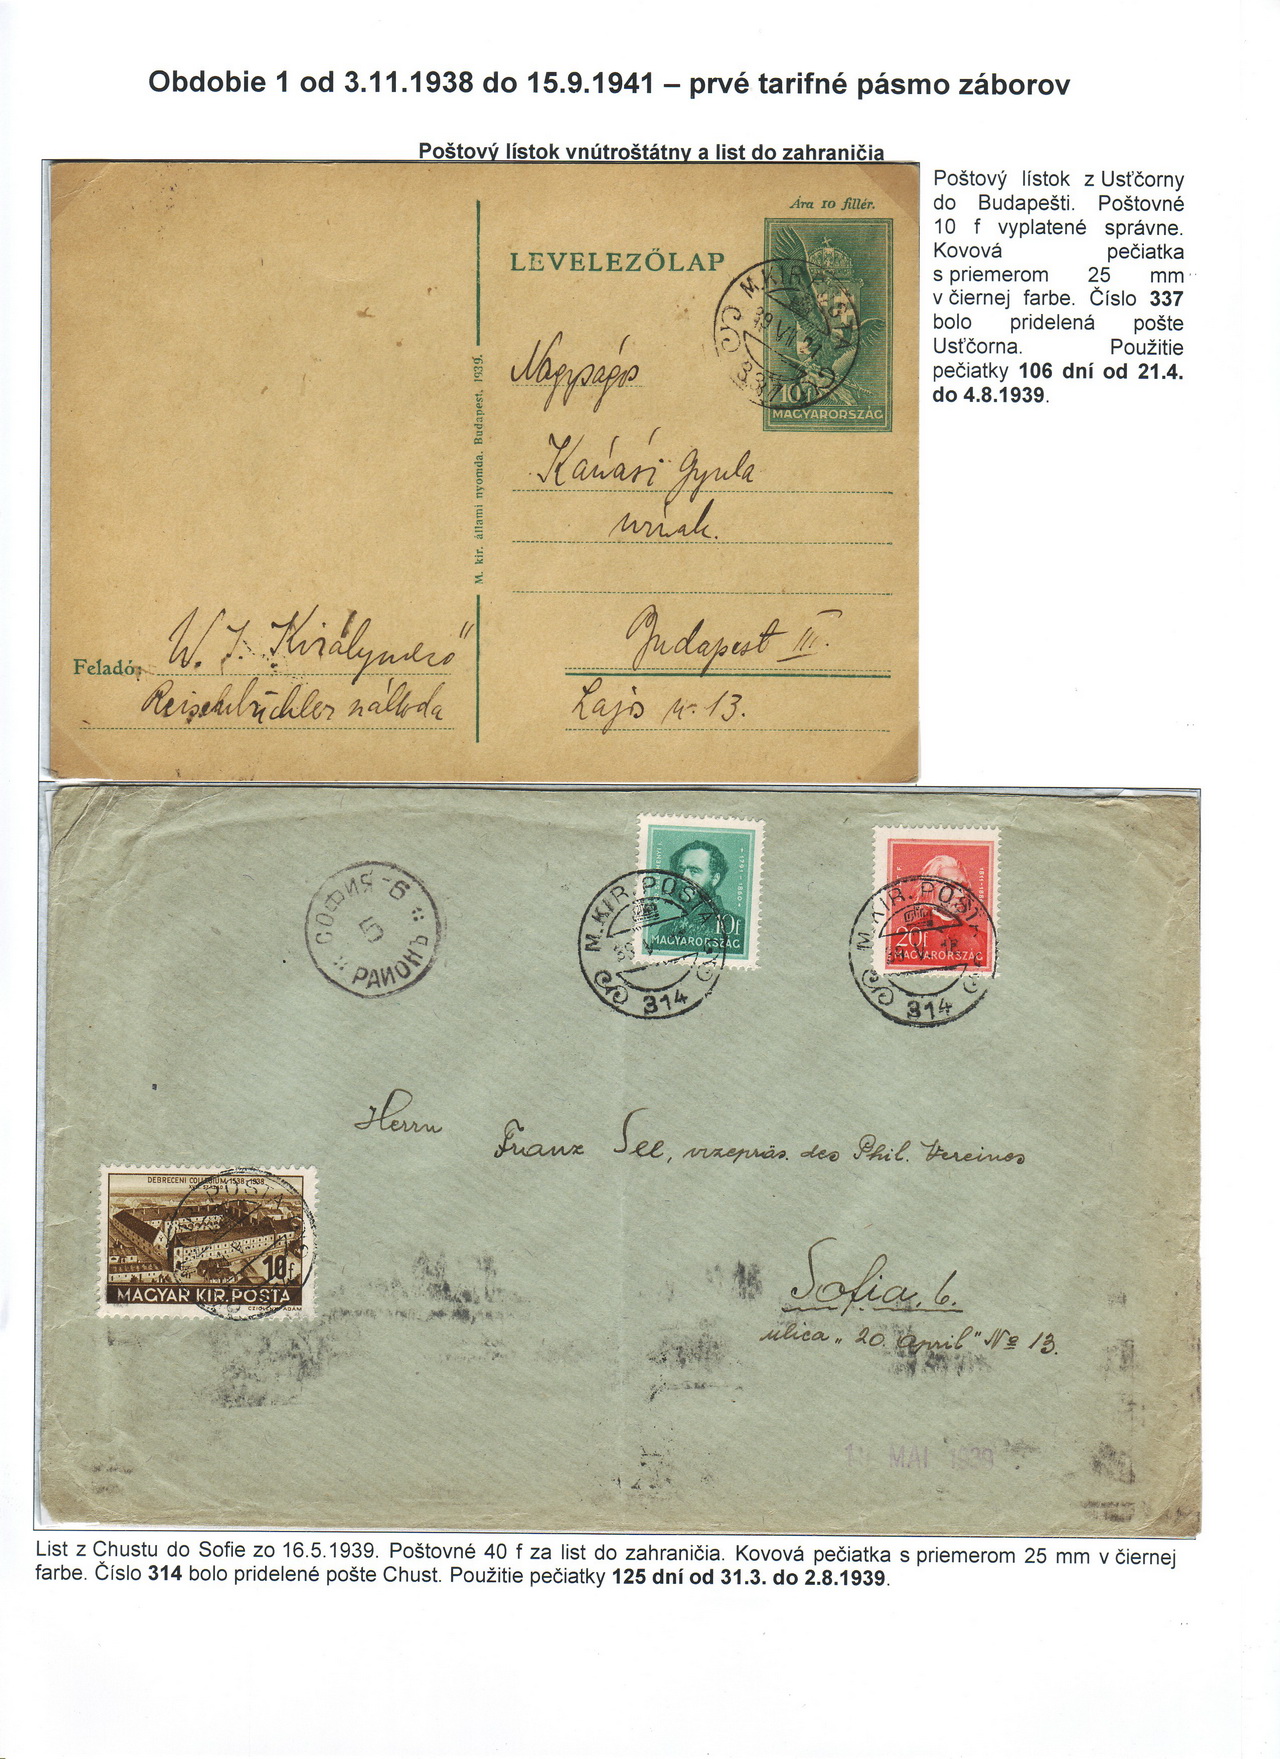 Obdobie 1 od 3.11.1938 do 15.9.1941 – prvé tarifné pásmo záborov
Poštový lístok vnútroštátny a list do zahraničia
Poštový lístok z Usťčorny
do Budapešti. Poštovné
10 f vyplatené správne.
Kovová pečiatka
s priemerom 25 mm
v čiernej farbe. Číslo 337
bolo pridelená pošte
Usťčorna. Použitie
pečiatky 106 dní od 21.4.
do 4.8.1939.
Ára 10 fillér.
LEVELEZŐLAP
M. KIR. POSTA
337
10f
MAGYARORSZÁG
Nagyságos
Kanási Gyula
úrnak.
Budapest III.
Lajos u. 13.
M. kir. állami nyomda. Budapest. 1939.
Feladó:
W. J. Királymező
Reisenbüchler szálloda
СОФИЯ-6
5
РАЙОНЪ
10f
MAGYARORSZÁG
M. KIR. POSTA
314
20f
MAGYARORSZÁG
M. KIR. POSTA
314
Herrn
Franz See, vizepräs. des Phil. Vereines
DEBRECENI COLLEGIUM 1538-1938
10f
MAGYAR KIR. POSTA
Sofia. 6.
ulica „20. april" № 13.
MAI 1939
List z Chustu do Sofie zo 16.5.1939. Poštovné 40 f za list do zahraničia. Kovová pečiatka s priemerom 25 mm v čiernej
farbe. Číslo 314 bolo pridelené pošte Chust. Použitie pečiatky 125 dní od 31.3. do 2.8.1939.